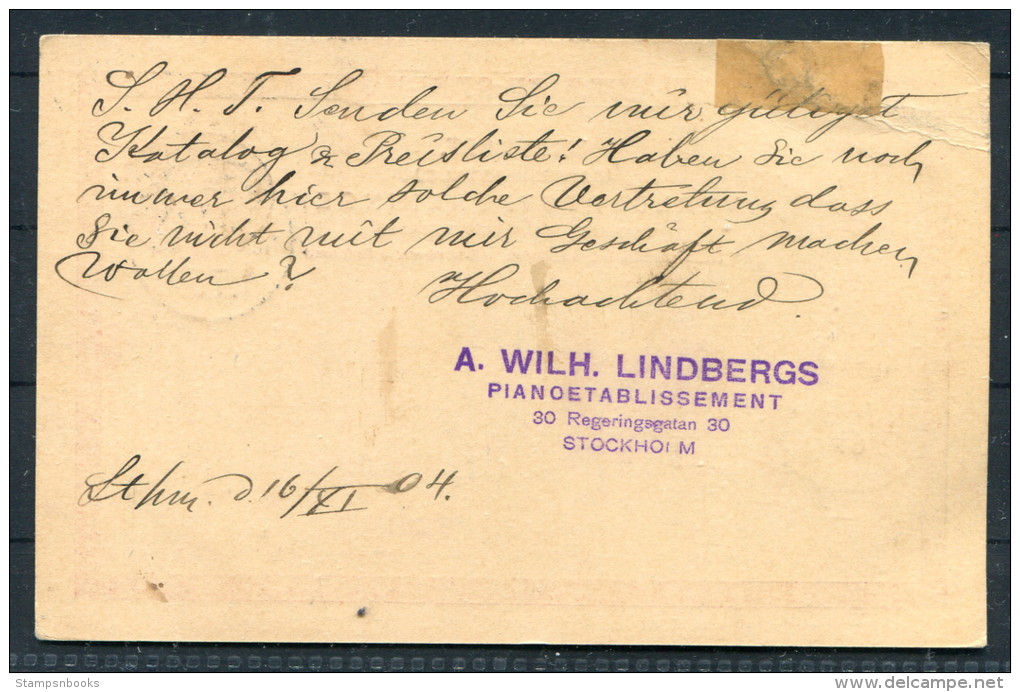 S. H. T. Senden Sie mir gütigst
Katalog & Preisliste! Haben Sie noch
immer hier solche Vertretung dass
Sie nicht mit mir Geschäft machen
wollen?
Hochachtend
A. WILH. LINDBERGS
PIANOETABLISSEMENT
30 Regeringsgatan 30
STOCKHOLM
Sthm. d. 16/XI 04.
Stampsnbooks
delcampe.net